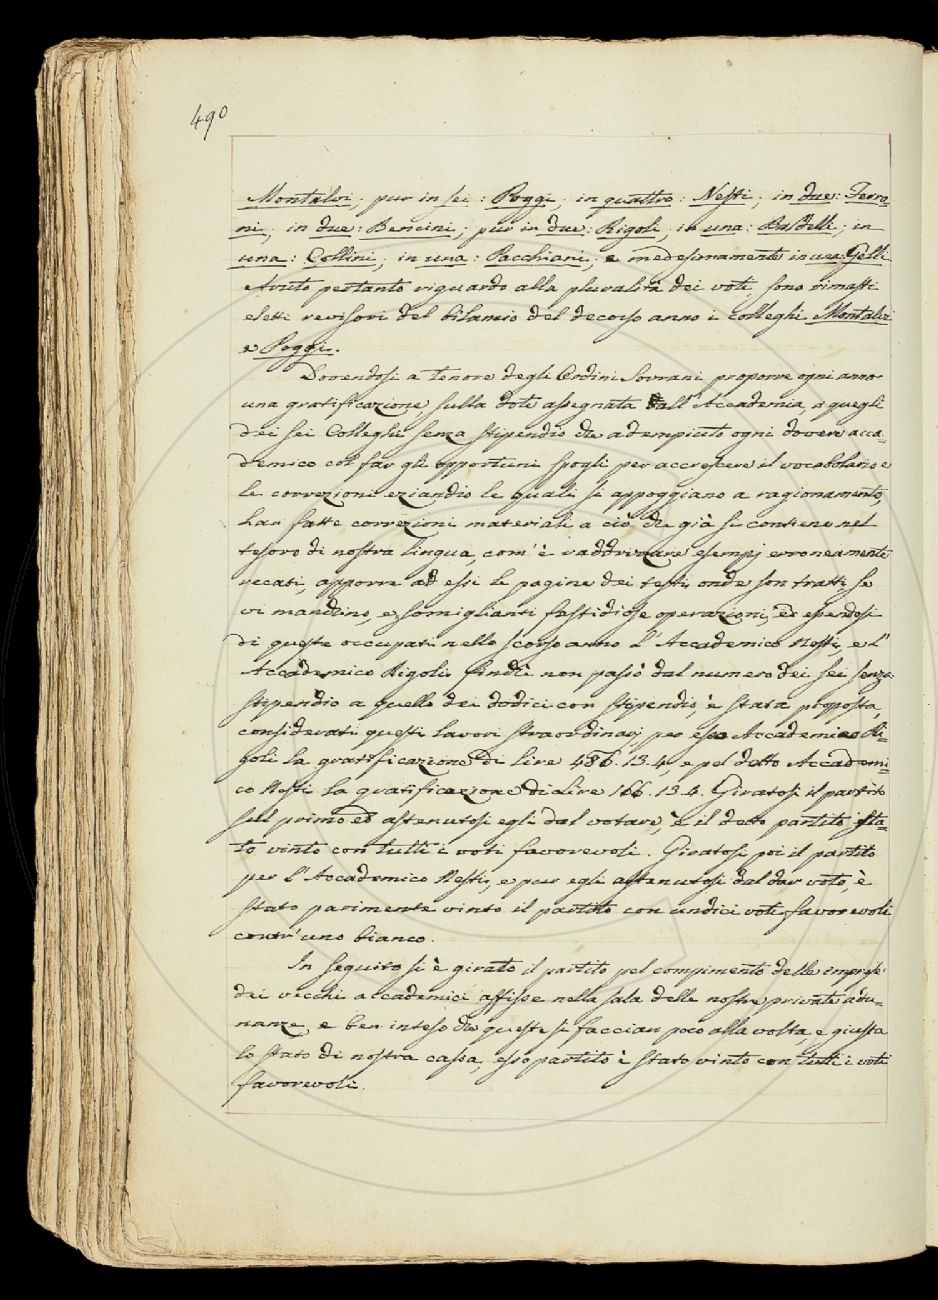 490
Montalvi; pur in sei: Poggi; in quattro: Nesti; in due: Ferro-
ni; in due: Bencini; pur in due: Rigoli; in una: Bastelli; in
una: Collini; in una: Pacchiani; e medesimamente in una Gelli
Avuto pertanto riguardo alla pluralità dei voti, sono rimasti
eletti revisori del bilancio del decorso anno i colleghi Montalvi
e Poggi.
Dovendosi a tenore degli Ordini Sovrani proporre ogni anno
una gratificazione sulla dote assegnata all'Accademia, a quegli
dei sei Colleghi senza stipendio che adempiuto ogni dovere acca=
demico col far gli opportuni spogli per accrescere il vocabolario e
le correzioni eziandio le quali si appoggiano a ragionamento,
han fatte correzioni materiali a ciò che già si contiene nel
tesoro di nostra lingua, com'è raddrizzare esempj erroneamente
recati, apporre ad essi le pagine dei testi onde son tratti, se
vi manchino, e somiglianti fastidiose operazioni, ed essendosi
di queste occupati nello scorso anno l'Accademico Nesti, e l'
Accademico Rigoli finchè non passò dal numero dei sei senza
stipendio a quello dei dodici con stipendio, è stata proposta,
considerati questi lavori straordinarj per esso Accademico Ri=
goli la gratificazione di lire 486.13.4, e pel detto Accademi=
co Nesti la gratificazione di Lire 166.13.4. Giratosi il partito
sul primo ed astenutosi egli dal votare, è il detto partito sta=
to vinto con tutti i voti favorevoli. Giratosi poi il partito
per l'Accademico Nesti, e pur egli astenutosi dal dar voto, è
stato parimente vinto il partito con undici voti favorevoli
contr'uno bianco.
In seguito si è girato il partito pel compimento delle imprese
dei vecchi accademici affisse nella sala delle nostre private adu=
nanze, e ben inteso che queste si faccian poco alla volta, e giusta
lo stato di nostra cassa, esso partito è stato vinto con tutti i voti
favorevoli.